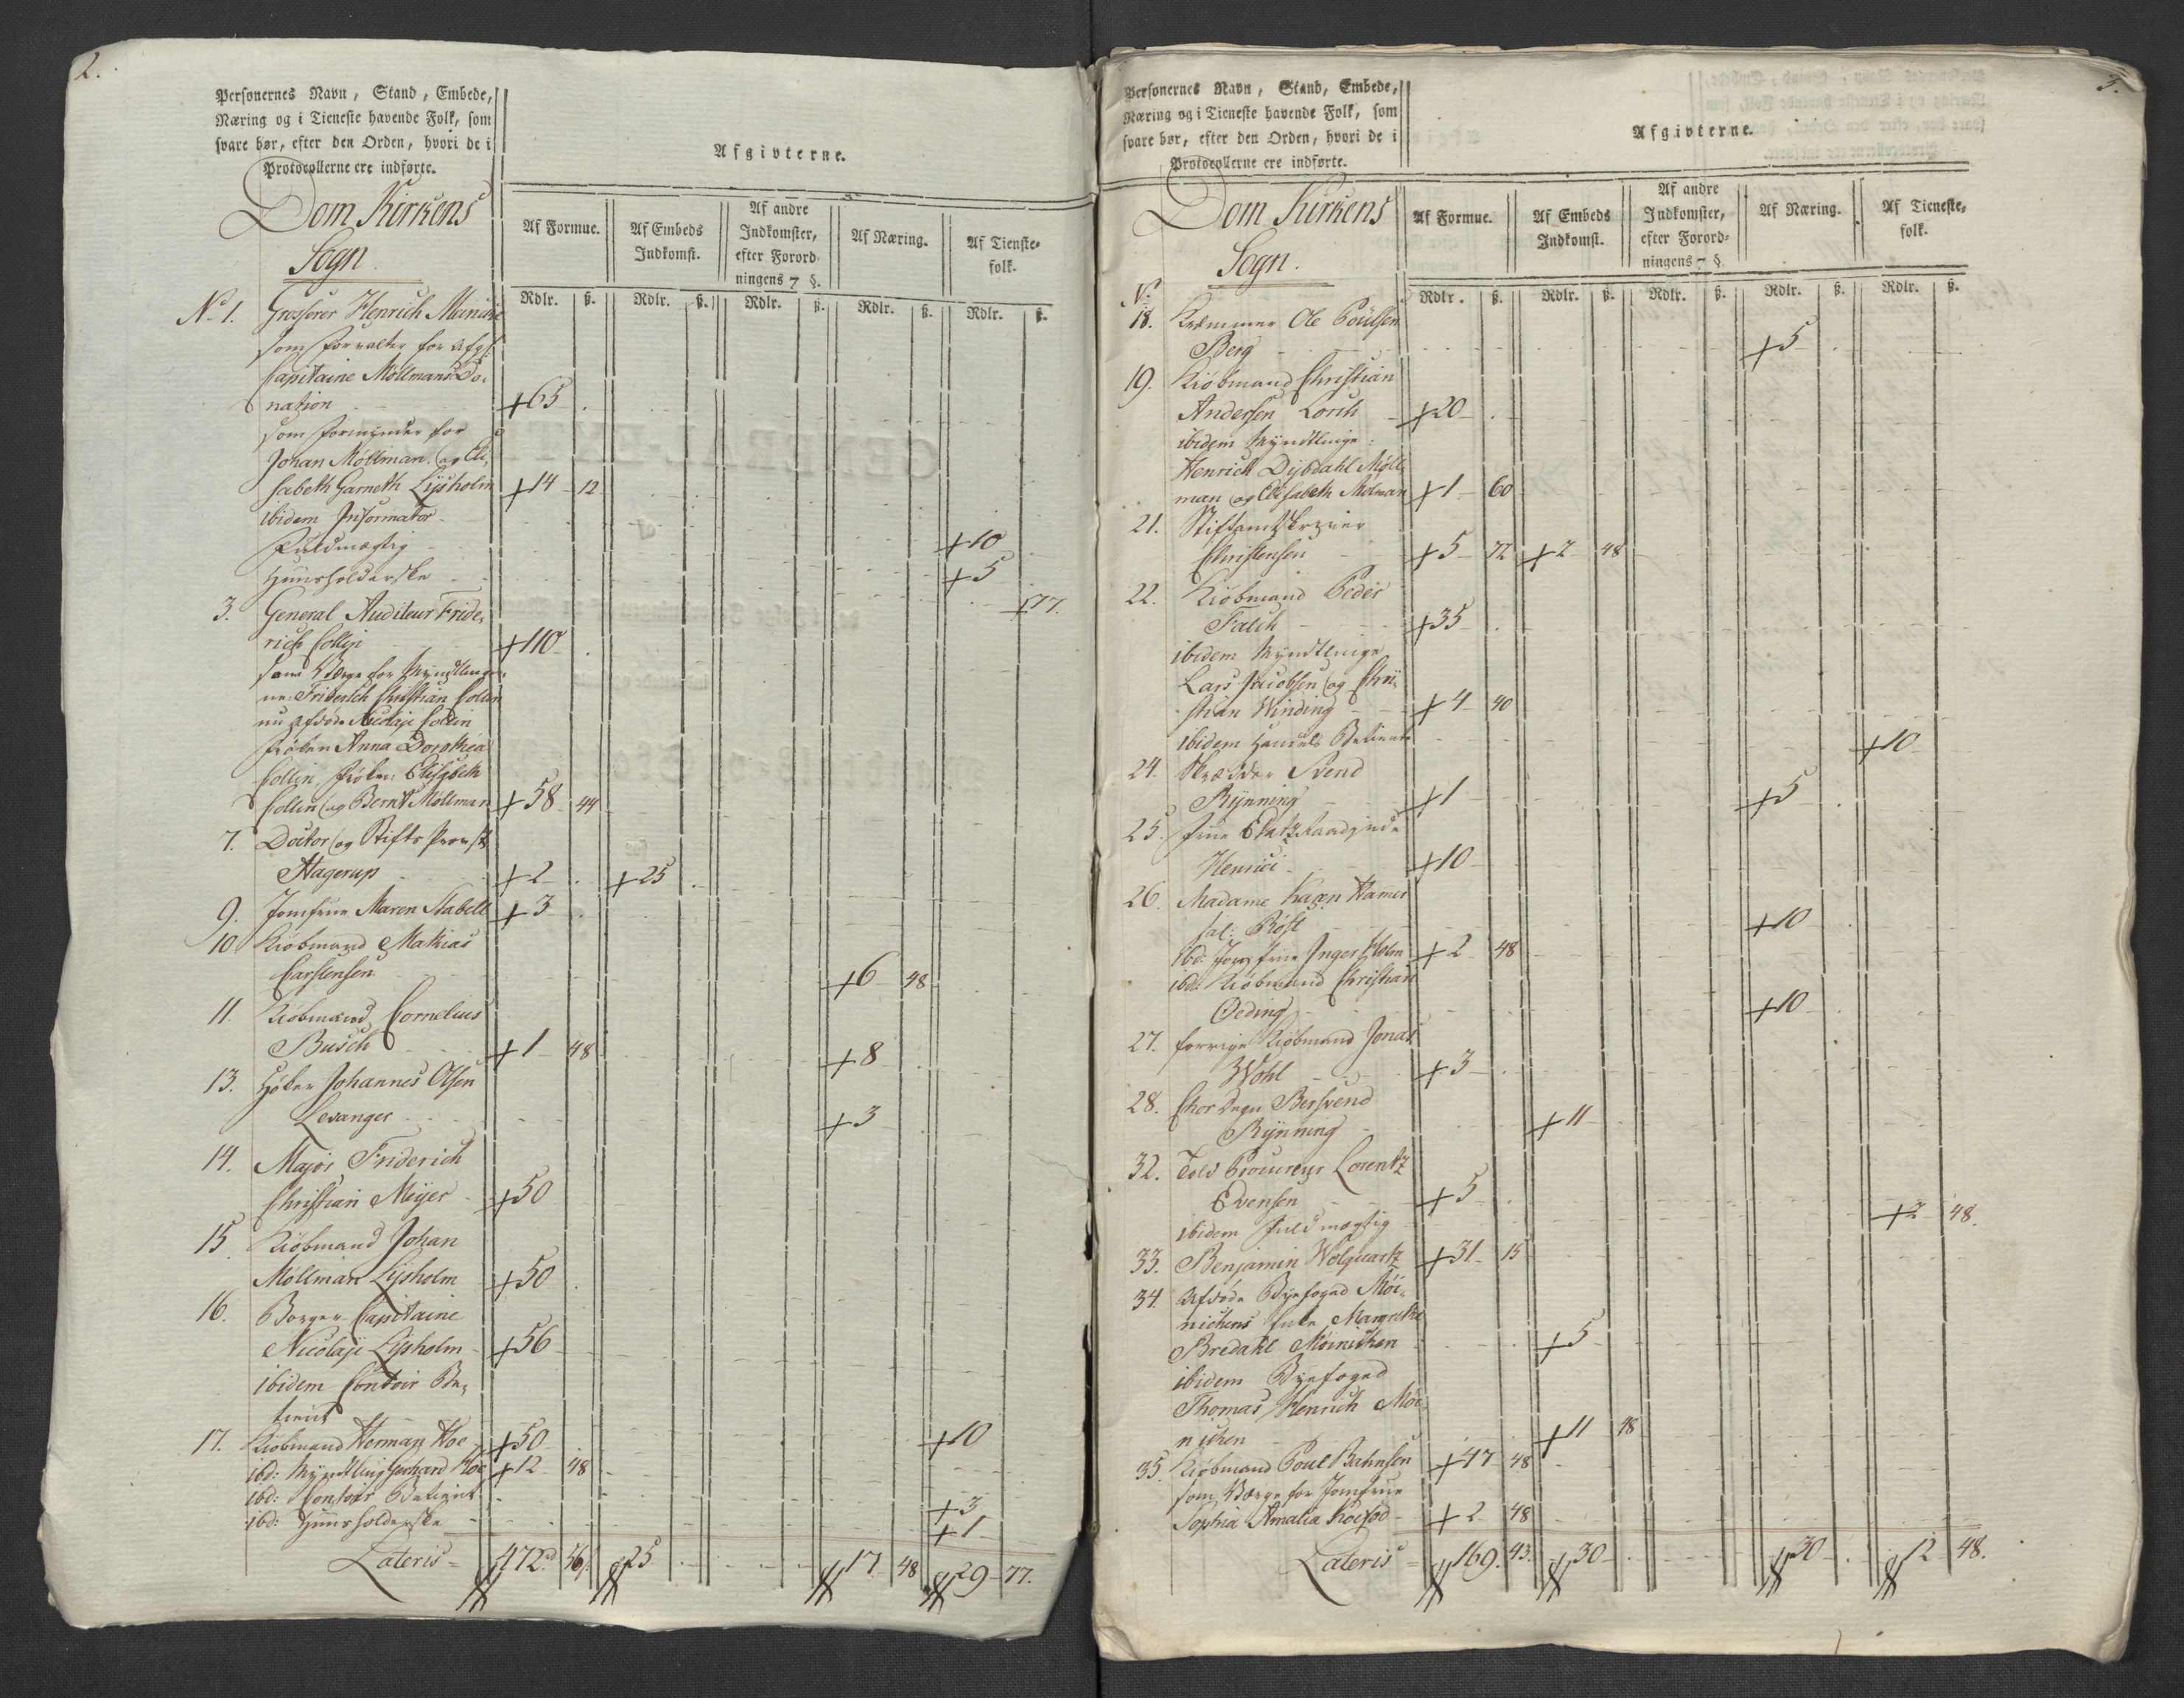 2.
Personernes Navn, Stand, Embede,
Næring og i Tieneste havende Folk, som
svare bør, efter den Orden, hvori de i
Protocollerne ere indførte.
Afgivterne.
Dom Kirkens
Sogn
Af Formue.
Af Embeds
Indkomst.
Af andre
Indkomster,
efter Forord-
ningens 7 §.
Af Næring.
Af Tienste-
folk.
Rdlr. ß. Rdlr. ß. Rdlr. ß. Rdlr. ß. Rdlr. ß.
No 1. Grosserer Henrich Meincke
som forvalter for afg:
Capitaine Møllmans Do-
nation +65
som formynder for
Johan Møllman og Eli-
sabeth Garneth Lysholm +14 12
ibidem Informator +10
Fuldmægtig +5
Huusholderske +77.
3. General Auditeur Fride-
rich Collin +110
som Værge for Myndlinger-
ne: Friderich Christian Collin
nu afdøde Nicolaji Collin
Frøken Anna Dorothea
Collin, Frøken Elisabeth
Collin og Bernt Møllman +58 44
7. Doctor og Stifts Provst
Hagerup +2 +25
9. Jomfrue Maren Stabell +3
10 Kiøbmand Mathias
Carstensen +6 48
11. Kiøbmand Cornelius
Busch +1 48 +8
13. Høker Johannes Olsen
Levanger +3
14. Major Friderich
Christian Meyer +50
15 Kiøbmand Johan
Møllman Lysholm +50
16. Borger Capitaine
Nicolaji Lysholm +56
ibidem Contoir Be-
tient +10
17. Kiøbmand Herman Hoe +50
ibd: Myndtling Gerhard Hoe +12 48
ibd: Contoir Betient +3
ibd: Huusholderske +1
Lateris 472 56 25 17 48 29 77.
3.
Personernes Navn, Stand, Embede,
Næring og i Tieneste havende Folk, som
svare bør, efter den Orden, hvori de i
Protocollerne ere indførte.
Afgivterne.
Dom Kirkens
Sogn.
Af Formue.
Af Embeds
Indkomst.
Af andre
Indkomster,
efter Forord-
ningens 7 §.
Af Næring.
Af Tieneste-
folk.
Rdlr. ß. Rdlr. ß. Rdlr. ß. Rdlr. ß. Rdlr. ß.
No
18. Kræmmer Ole Poulsen
Berg +5
19. Kiøbmand Christian
Andersen Lorch +20
ibidem Myndtlinge:
Henrich Dybdahl Møll-
man og Elisabeth Mølman +1 60
21. Stiftamtskriver
Christensen +5 72 +2 48
22. Kiøbmand Peder
Falch +35
ibidem Myndtlinge
Lars Jacobsen og Chri-
stian Winding +4 40
ibidem Handels Betient +10
24. Skrædder Svend
Rynning +1 +5
25. Frue Etatzraadinde
Henrici +10
26. Madame Karen Hamer
sal: Røst +10
ibd: Jomfrue Inger Holm +2 48
ibd: Kiøbmand Christian
Oeding +10
27. forrige Kiøbmand Jonas
Wohl +3
28. Chor Degn Bersvend
Rynning +11
32. Told Procureur Lorentz
Evensen +5
ibidem Fuldmægtig +2 48.
33. Benjamin Wolquartz +31 15
34. Afdøde Byefoged Møi-
nichens Enke Margrethe
Bredahl Møinichen +5
ibidem Byefoged
Thomas Henrich Møi-
nichen +11 48
35. Kiøbmand Poul Bahnsen +47 48
som Værge for Jomfrue
Sophia Amalia Koefod +2 48
Lateris 169. 43. 30 30 12 48.